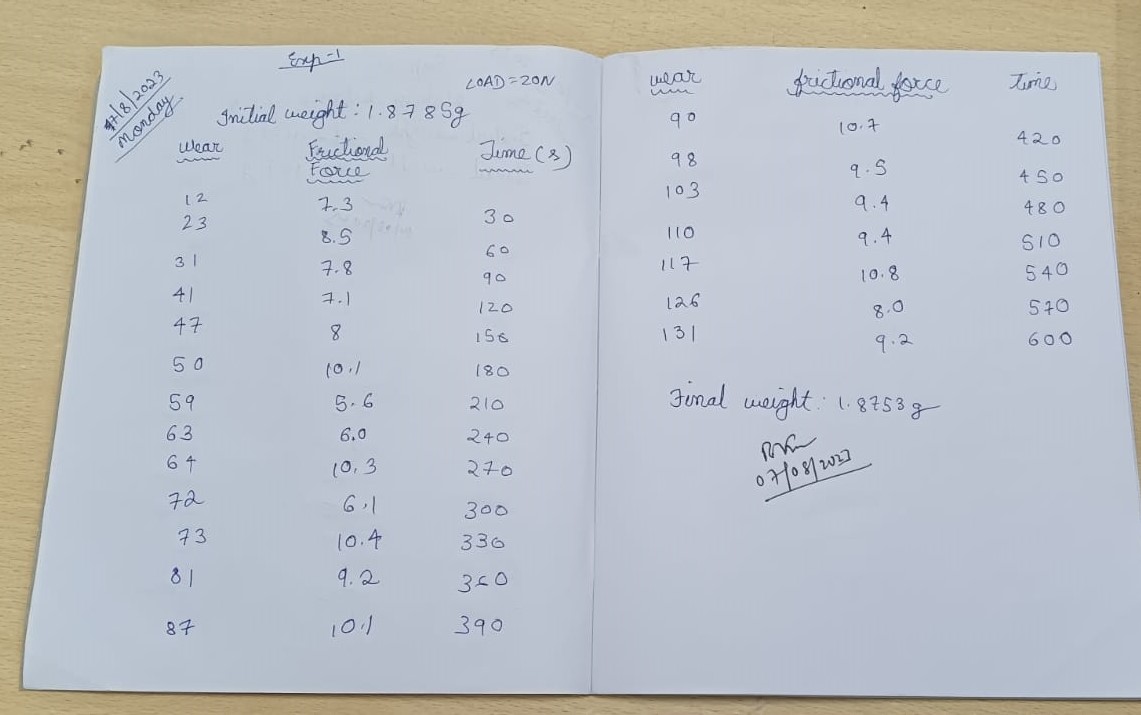 Exp-1
7/8/2023
Monday
LOAD = 20N
Initial weight : 1.8785g
Wear Frictional Force Time (s)
12 7.3 30
23 8.5 60
31 7.8 90
41 7.1 120
47 8 150
50 10.1 180
59 5.6 210
63 6.0 240
64 10.3 270
72 6.1 300
73 10.4 330
81 9.2 360
87 10.1 390
wear frictional force Time
90 10.7 420
98 9.5 450
103 9.4 480
110 9.4 510
117 10.8 540
126 8.0 570
131 9.2 600
Final weight : 1.8753g
07/08/2023